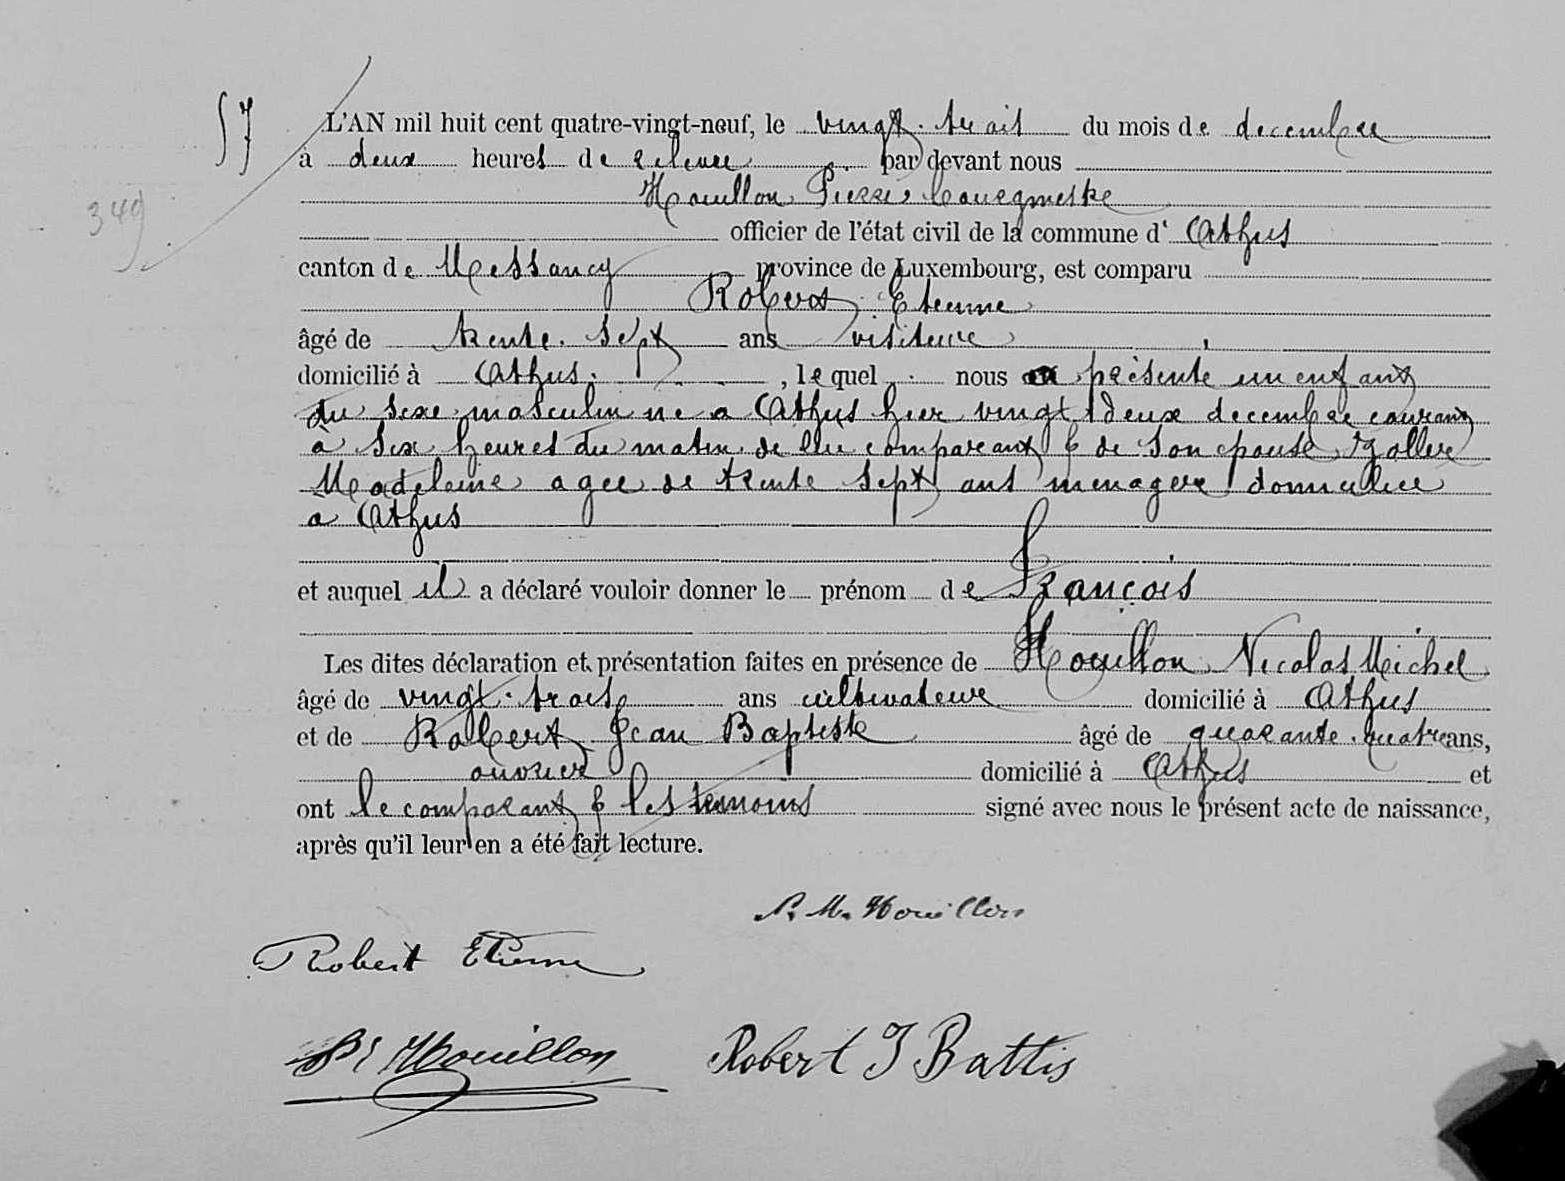 57
L'AN mil huit cent quatre-vingt-neuf, le vingt-trois du mois de decembre
à deux heures de relevee par devant nous
349
Houillon Pierre, bourgmestre
officier de l'état civil de la commune d' Athus
canton de Messancy province de Luxembourg, est comparu
Robert Etienne
âgé de trente-sept ans visiteur,
domicilié à Athus, lequel nous a présente un enfant
du sexe masculin ne a Athus hier vingt deux decembre courant
à six heures du matin de lui comparant & de son epouse
Madeleine agee de trente sept ans menagere domiciliee
a Athus
et auquel il a déclaré vouloir donner le prénom de François
Les dites déclaration et présentation faites en présence de Houillon Nicolas Michel
âgé de vingt-trois ans cultivateur domicilié à Athus
et de Robert Jean Baptiste âgé de quarante-quatre ans,
ouvrier domicilié à Athus et
ont le comparant & les temoins signé avec nous le présent acte de naissance,
après qu'il leur en a été fait lecture.
N. M. Houillon
Robert Etienne
Houillon Robert J Battis